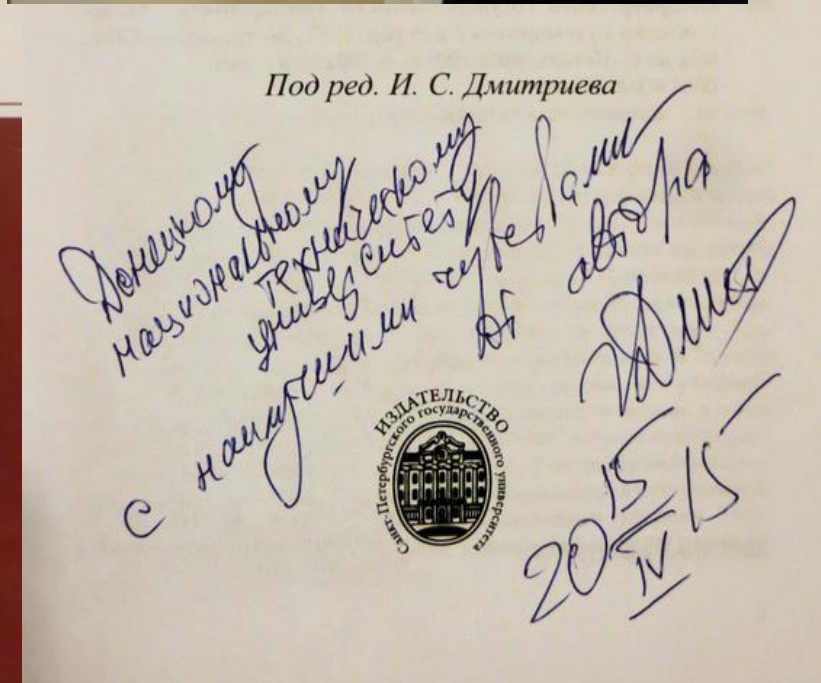 Под ред. И. С. Дмитриева
Донецкому
национальному
техническому
университету
с наилучшими чувствами
от автора
ИЗДАТЕЛЬСТВО
Санкт-Петербургского государственного университета
20 15/IV 15